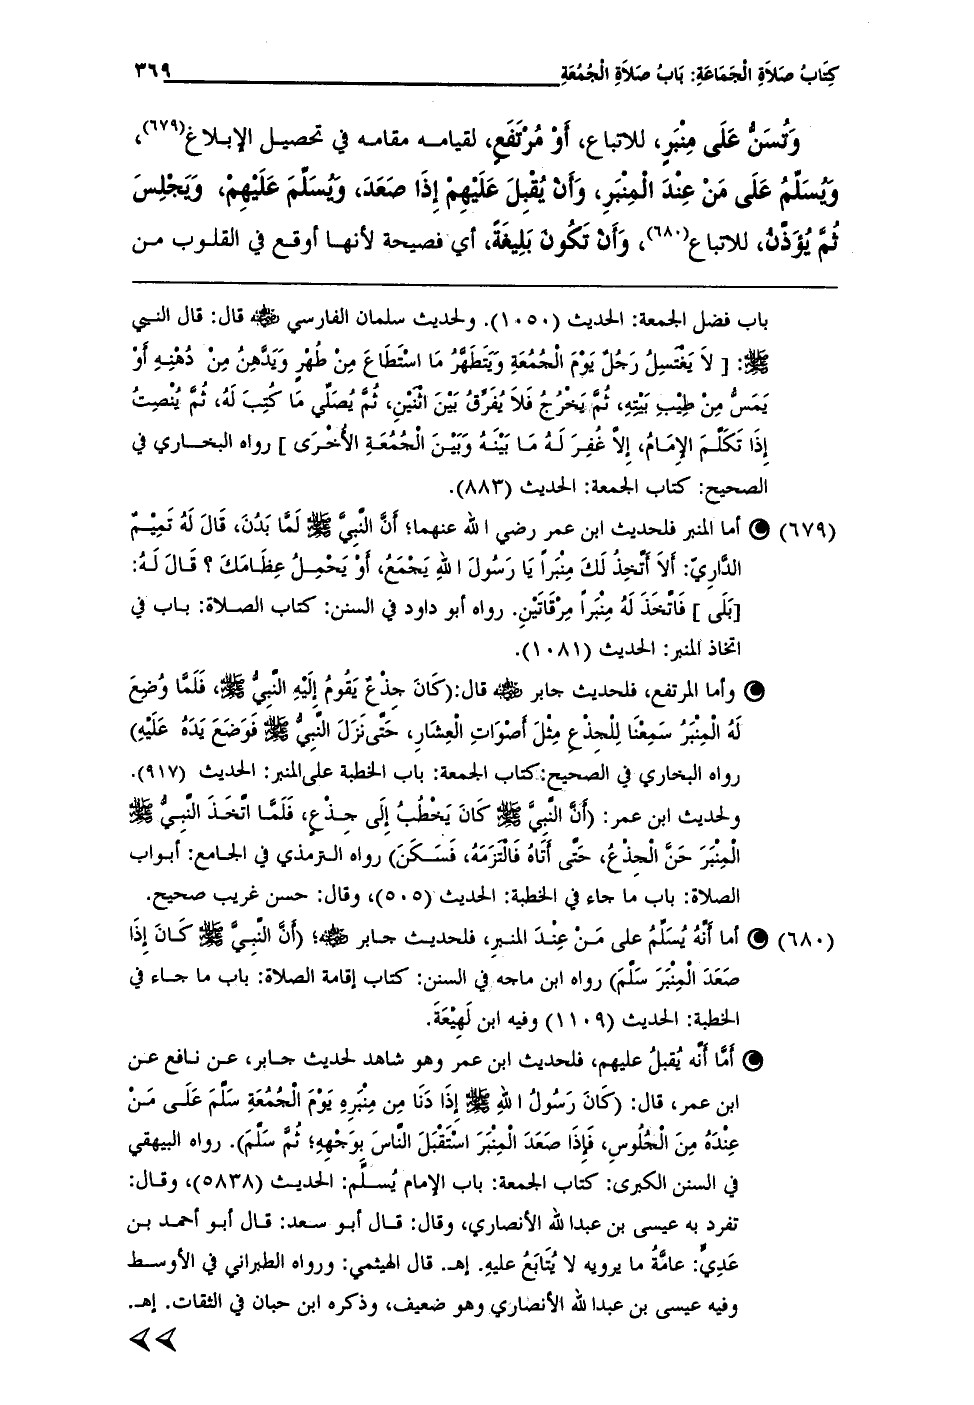 كِتَابُ صَلاَةِ الْجَمَاعَةِ: بَابُ صَلاَةِ الْجُمُعَةِ ٣٦٩
وَتُسَنُّ عَلَى مِنْبَرٍ، للاتباع، أَوْ مُرْتَفَعٍ، لقيامه مقامه في تحصيل الإبلاغ(٦٧٩)،
وَيُسَلِّمُ عَلَى مَنْ عِنْدَ الْمِنْبَرِ، وَأَنْ يُقْبِلَ عَلَيْهِمْ إِذَا صَعَدَ، وَيُسَلِّمَ عَلَيْهِمْ، وَيَجْلِسَ
ثُمَّ يُؤَذَّنُ، للاتباع(٦٨٠)، وَأَنْ تَكُونَ بَلِيغَةً، أي فصيحة لأنها أوقع في القلوب من
باب فضل الجمعة: الحديث (١٠٥٠). ولحديث سلمان الفارسي ﷺ قال: قال النبي
ﷺ: [ لاَ يَغْتَسِلُ رَجُلٌ يَوْمَ الْجُمُعَةِ وَيَتَطَهَّرُ مَا اسْتَطَاعَ مِنْ طُهْرٍ وَيَدَّهِنُ مِنْ دُهْنِهِ أَوْ
يَمَسُّ مِنْ طِيبِ بَيْتِهِ، ثُمَّ يَخْرُجُ فَلاَ يُفَرِّقُ بَيْنَ اثْنَيْنِ، ثُمَّ يُصَلِّي مَا كُتِبَ لَهُ، ثُمَّ يُنْصِتُ
إِذَا تَكَلَّمَ الإِمَامُ، إِلاَّ غُفِرَ لَهُ مَا بَيْنَهُ وَبَيْنَ الْجُمُعَةِ الأُخْرَى ] رواه البخاري في
الصحيح: كتاب الجمعة: الحديث (٨٨٣).
(٦٧٩) أما المنبر فلحديث ابن عمر رضي الله عنهما؛ أَنَّ النَّبِيَّ ﷺ لَمَّا بَدُنَ، قَالَ لَهُ تَمِيْمٌ
الدَّارِيّ: أَلاَ أَتَّخِذُ لَكَ مِنْبَراً يَا رَسُولَ اللهِ يَجْمَعُ، أَوْ يَحْمِلُ عِظَامَكَ ؟ قَالَ لَهُ:
[بَلَى ] فَاتَّخَذَ لَهُ مِنْبَراً مِرْقَاتَيْنِ. رواه أبو داود في السنن: كتاب الصلاة: باب في
اتخاذ المنبر: الحديث (١٠٨١).
وأما المرتفع، فلحديث جابر ﷺ قال:(كَانَ جِذْعٌ يَقُومُ إِلَيْهِ النَّبِيُّ ﷺ، فَلَمَّا وُضِعَ
لَهُ الْمِنْبَرُ سَمِعْنَا لِلْجِذْعِ مِثْلَ أَصْوَاتِ الْعِشَارِ، حَتَّى نَزَلَ النَّبِيُّ ﷺ فَوَضَعَ يَدَهُ عَلَيْهِ)
رواه البخاري في الصحيح:كتاب الجمعة: باب الخطبة على المنبر: الحديث (٩١٧).
ولحديث ابن عمر: (أَنَّ النَّبِيَّ ﷺ كَانَ يَخْطُبُ إِلَى جِذْعٍ، فَلَمَّا اتَّخَذَ النَّبِيُّ ﷺ
الْمِنْبَرَ حَنَّ الْجِذْعُ، حَتَّى أَتَاهُ فَالْتَزَمَهُ، فَسَكَنَ) رواه الترمذي في الجامع: أبواب
الصلاة: باب ما جاء في الخطبة: الحديث (٥٠٥)، وقال: حسن غريب صحيح.
(٦٨٠) أما أَنَّهُ يُسَلِّمُ على مَنْ عِنْدَ المنبر، فلحديث جابر ﷺ؛ (أَنَّ النَّبِيَّ ﷺ كَانَ إِذَا
صَعَدَ الْمِنْبَرَ سَلَّمَ) رواه ابن ماجه في السنن: كتاب إقامة الصلاة: باب ما جاء في
الخطبة: الحديث (١١٠٩) وفيه ابن لَهِيْعَةَ.
أَمَّا أَنَّه يُقبلُ عليهم، فلحديث ابن عمر وهو شاهد لحديث جابر، عن نافع عن
ابن عمر، قال: (كَانَ رَسُولُ اللهِ ﷺ إِذَا دَنَا مِن مِنْبَرِهِ يَوْمَ الْجُمُعَةِ سَلَّمَ عَلَى مَنْ
عِنْدَهُ مِنَ الْجُلُوسِ، فَإِذَا صَعَدَ الْمِنْبَرَ اسْتَقْبَلَ النَّاسَ بِوَجْهِهِ؛ ثُمَّ سَلَّمَ). رواه البيهقي
في السنن الكبرى: كتاب الجمعة: باب الإمام يُسلِّم: الحديث (٥٨٣٨)، وقال:
تفرد به عيسى بن عبدالله الأنصاري، وقال: قال أبو سعد: قال أبو أحمد بن
عَدِيٍّ: عامَّةُ ما يرويه لا يُتَابَعُ عليهِ. إهـ. قال الهيثمي: ورواه الطبراني في الأوسط
وفيه عيسى بن عبدالله الأنصاري وهو ضعيف، وذكره ابن حبان في الثقات. إهـ.